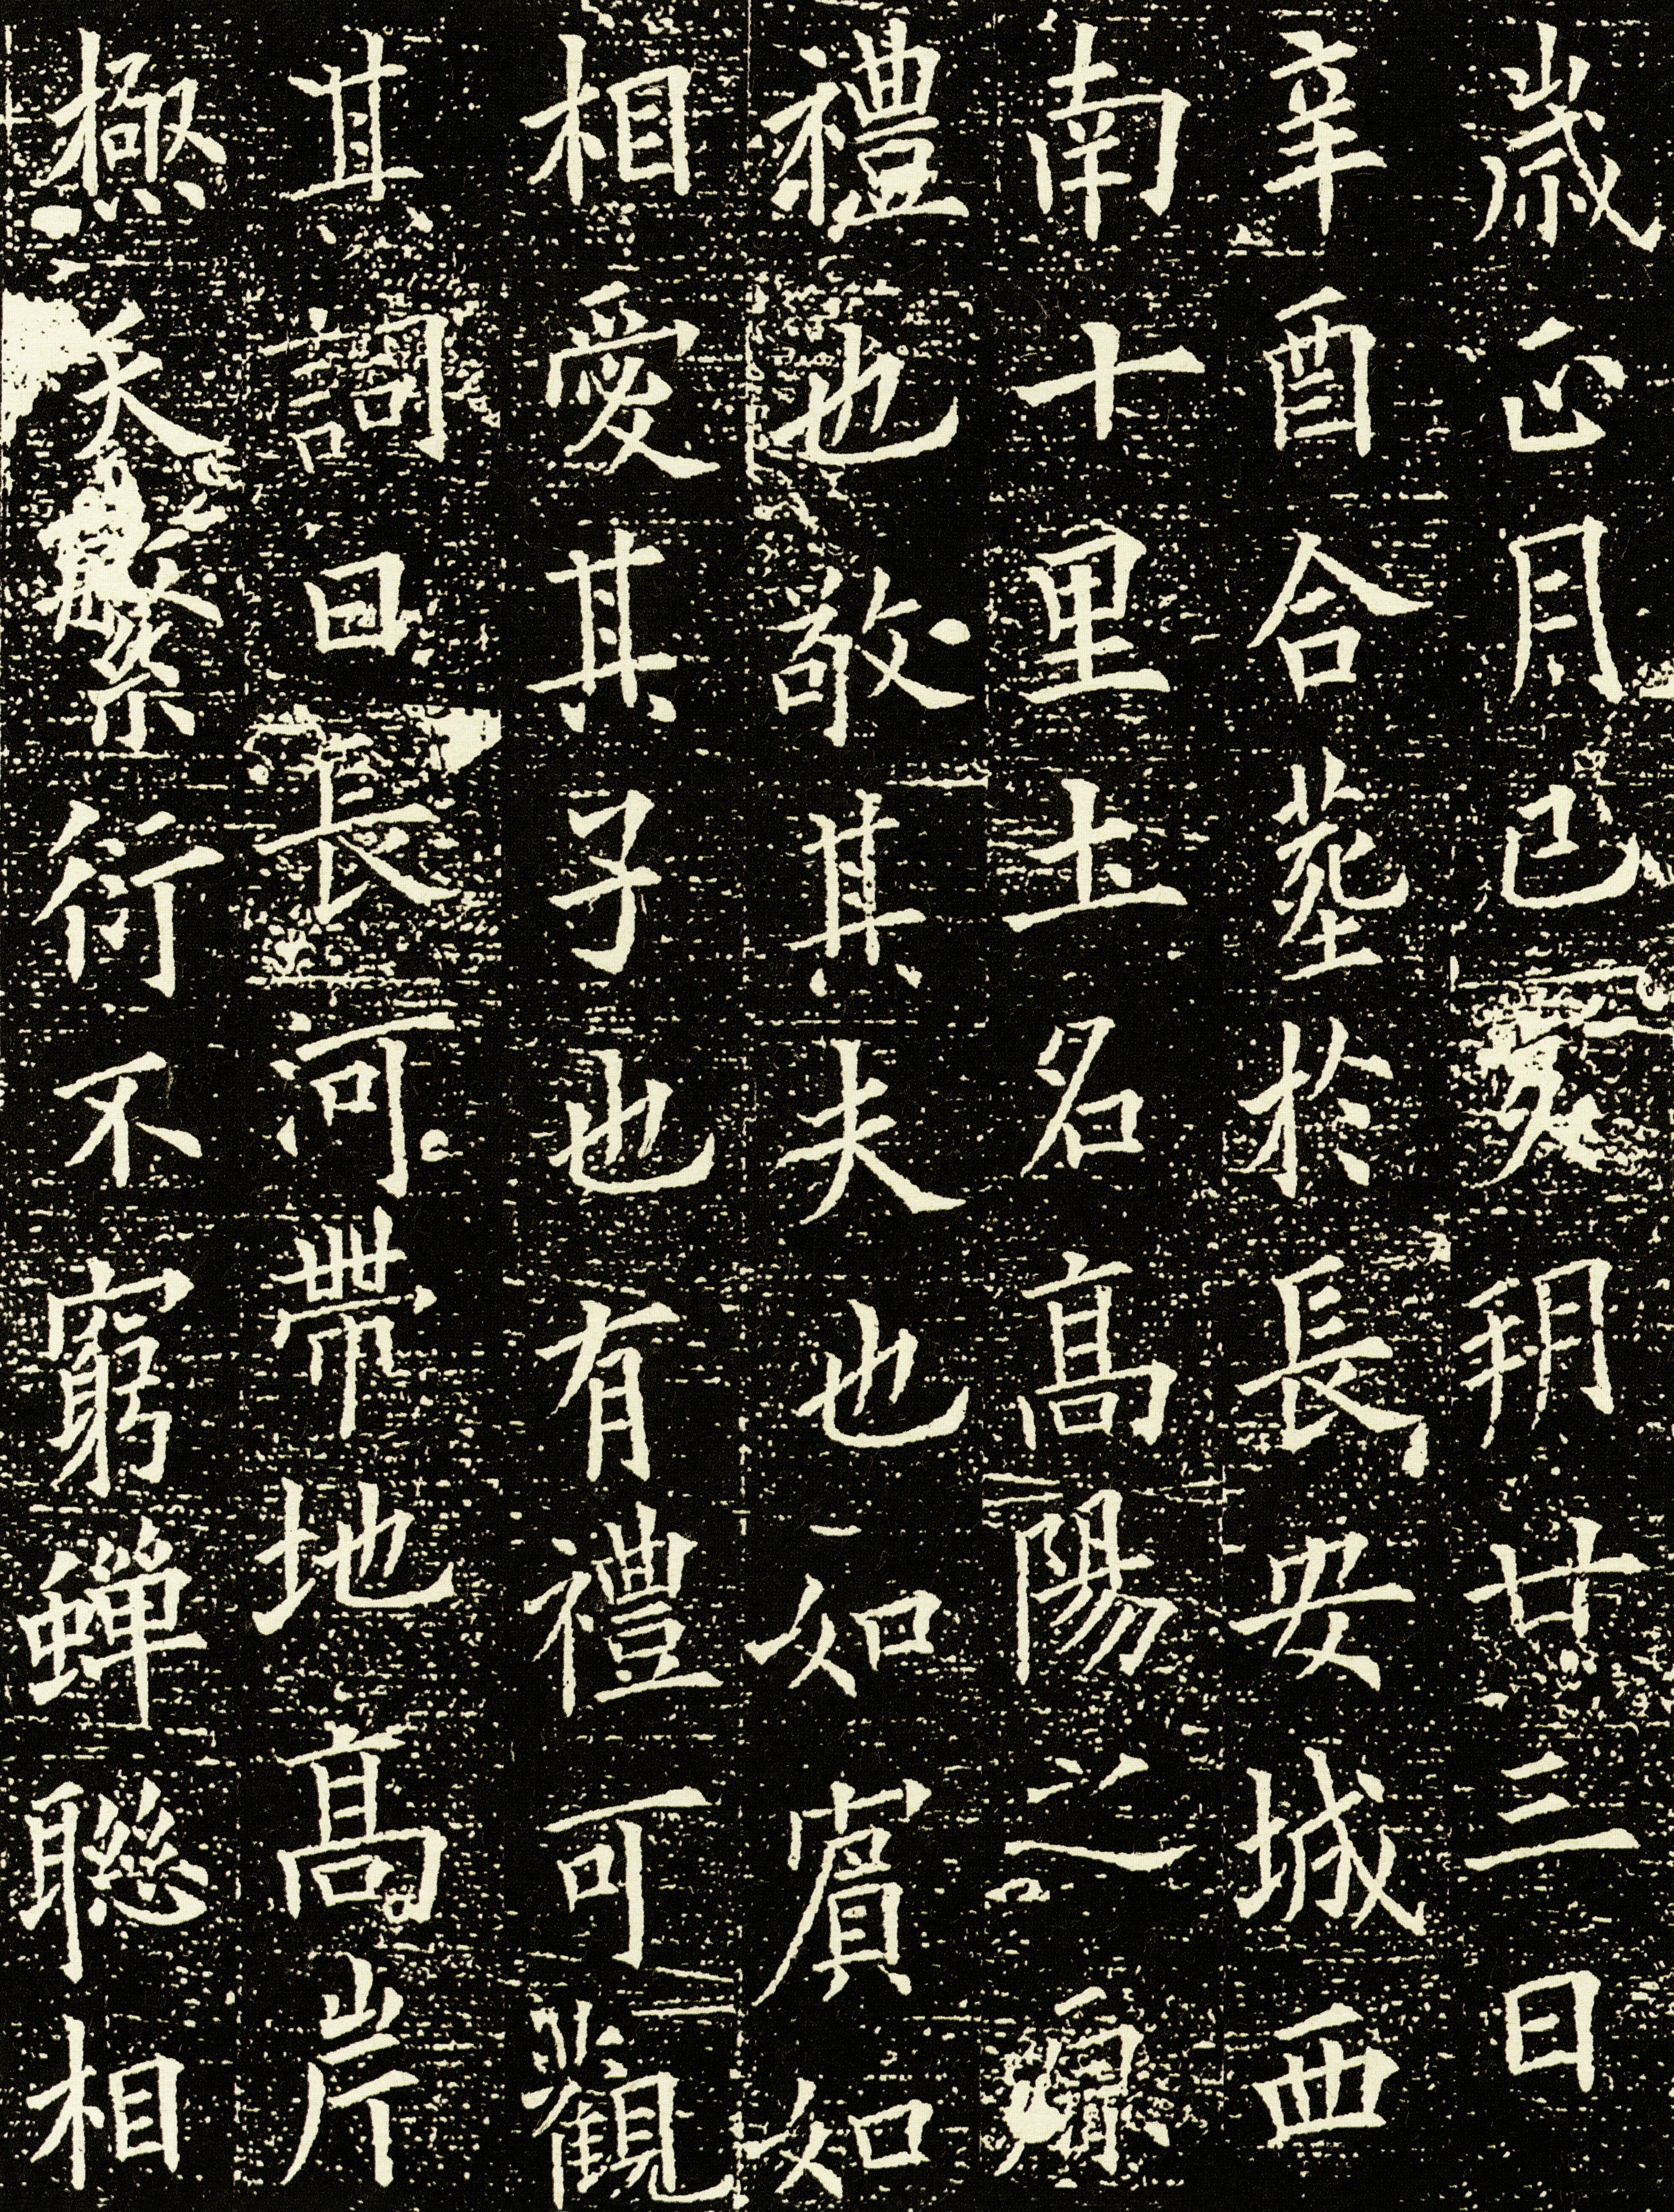 歲正月己亥朔廿三日
辛酉合塟於長安城西
南十里土名高陽之原
禮也敬其夫也如賓如
相愛其子也有禮可觀
其詞曰長河帶地高岸
極天繁衍不窮蟬聯相